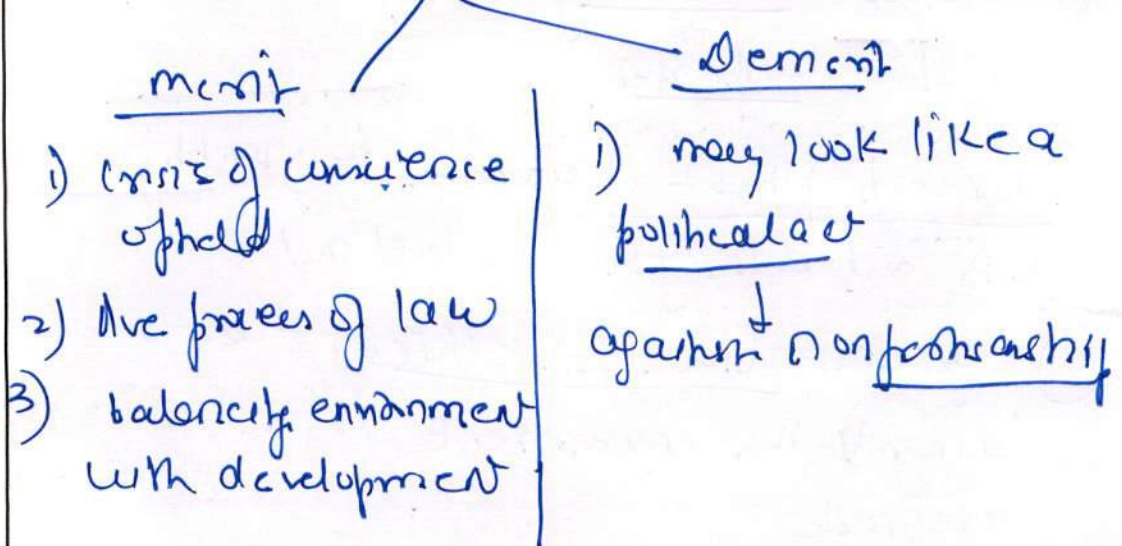 Merit
1) Crisis of conscience
upheld
2) due process of law
3) balancing environment
with development
Demerit
1) may look like a
political act
↓
against nonpartisanship